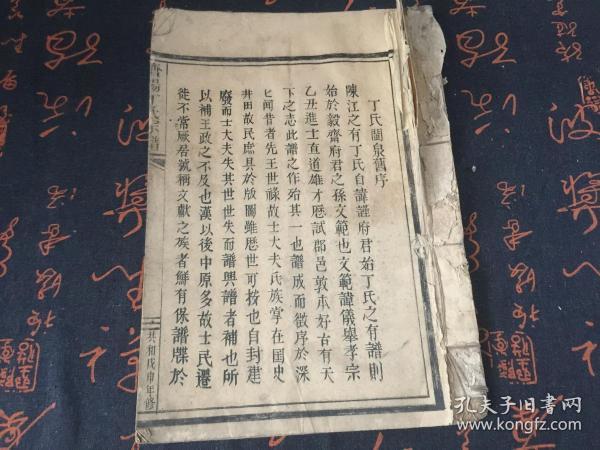 丁氏閩泉舊序
陳江之有丁氏自諱謹府君始丁氏之有譜則
始於毅齋府君之孫文範也文範諱儀舉孝宗
乙丑進士直道雄才歷試郡邑敦本好古有天
下之志此譜之作殆其一也譜成而徵序於深
匕聞昔者先王世祿故士大夫氏族掌在國史
井田故民庶具於版圖雖歷世可按也自封建
廢而士大夫失其世世失而譜興譜者補也所
以補王政之不及也漢以後中原多故士民遷
徙不常厥居號稱文獻之族者鮮有保譜牒於
濟陽丁氏宗譜
共和戊申年修
孔夫子旧书网